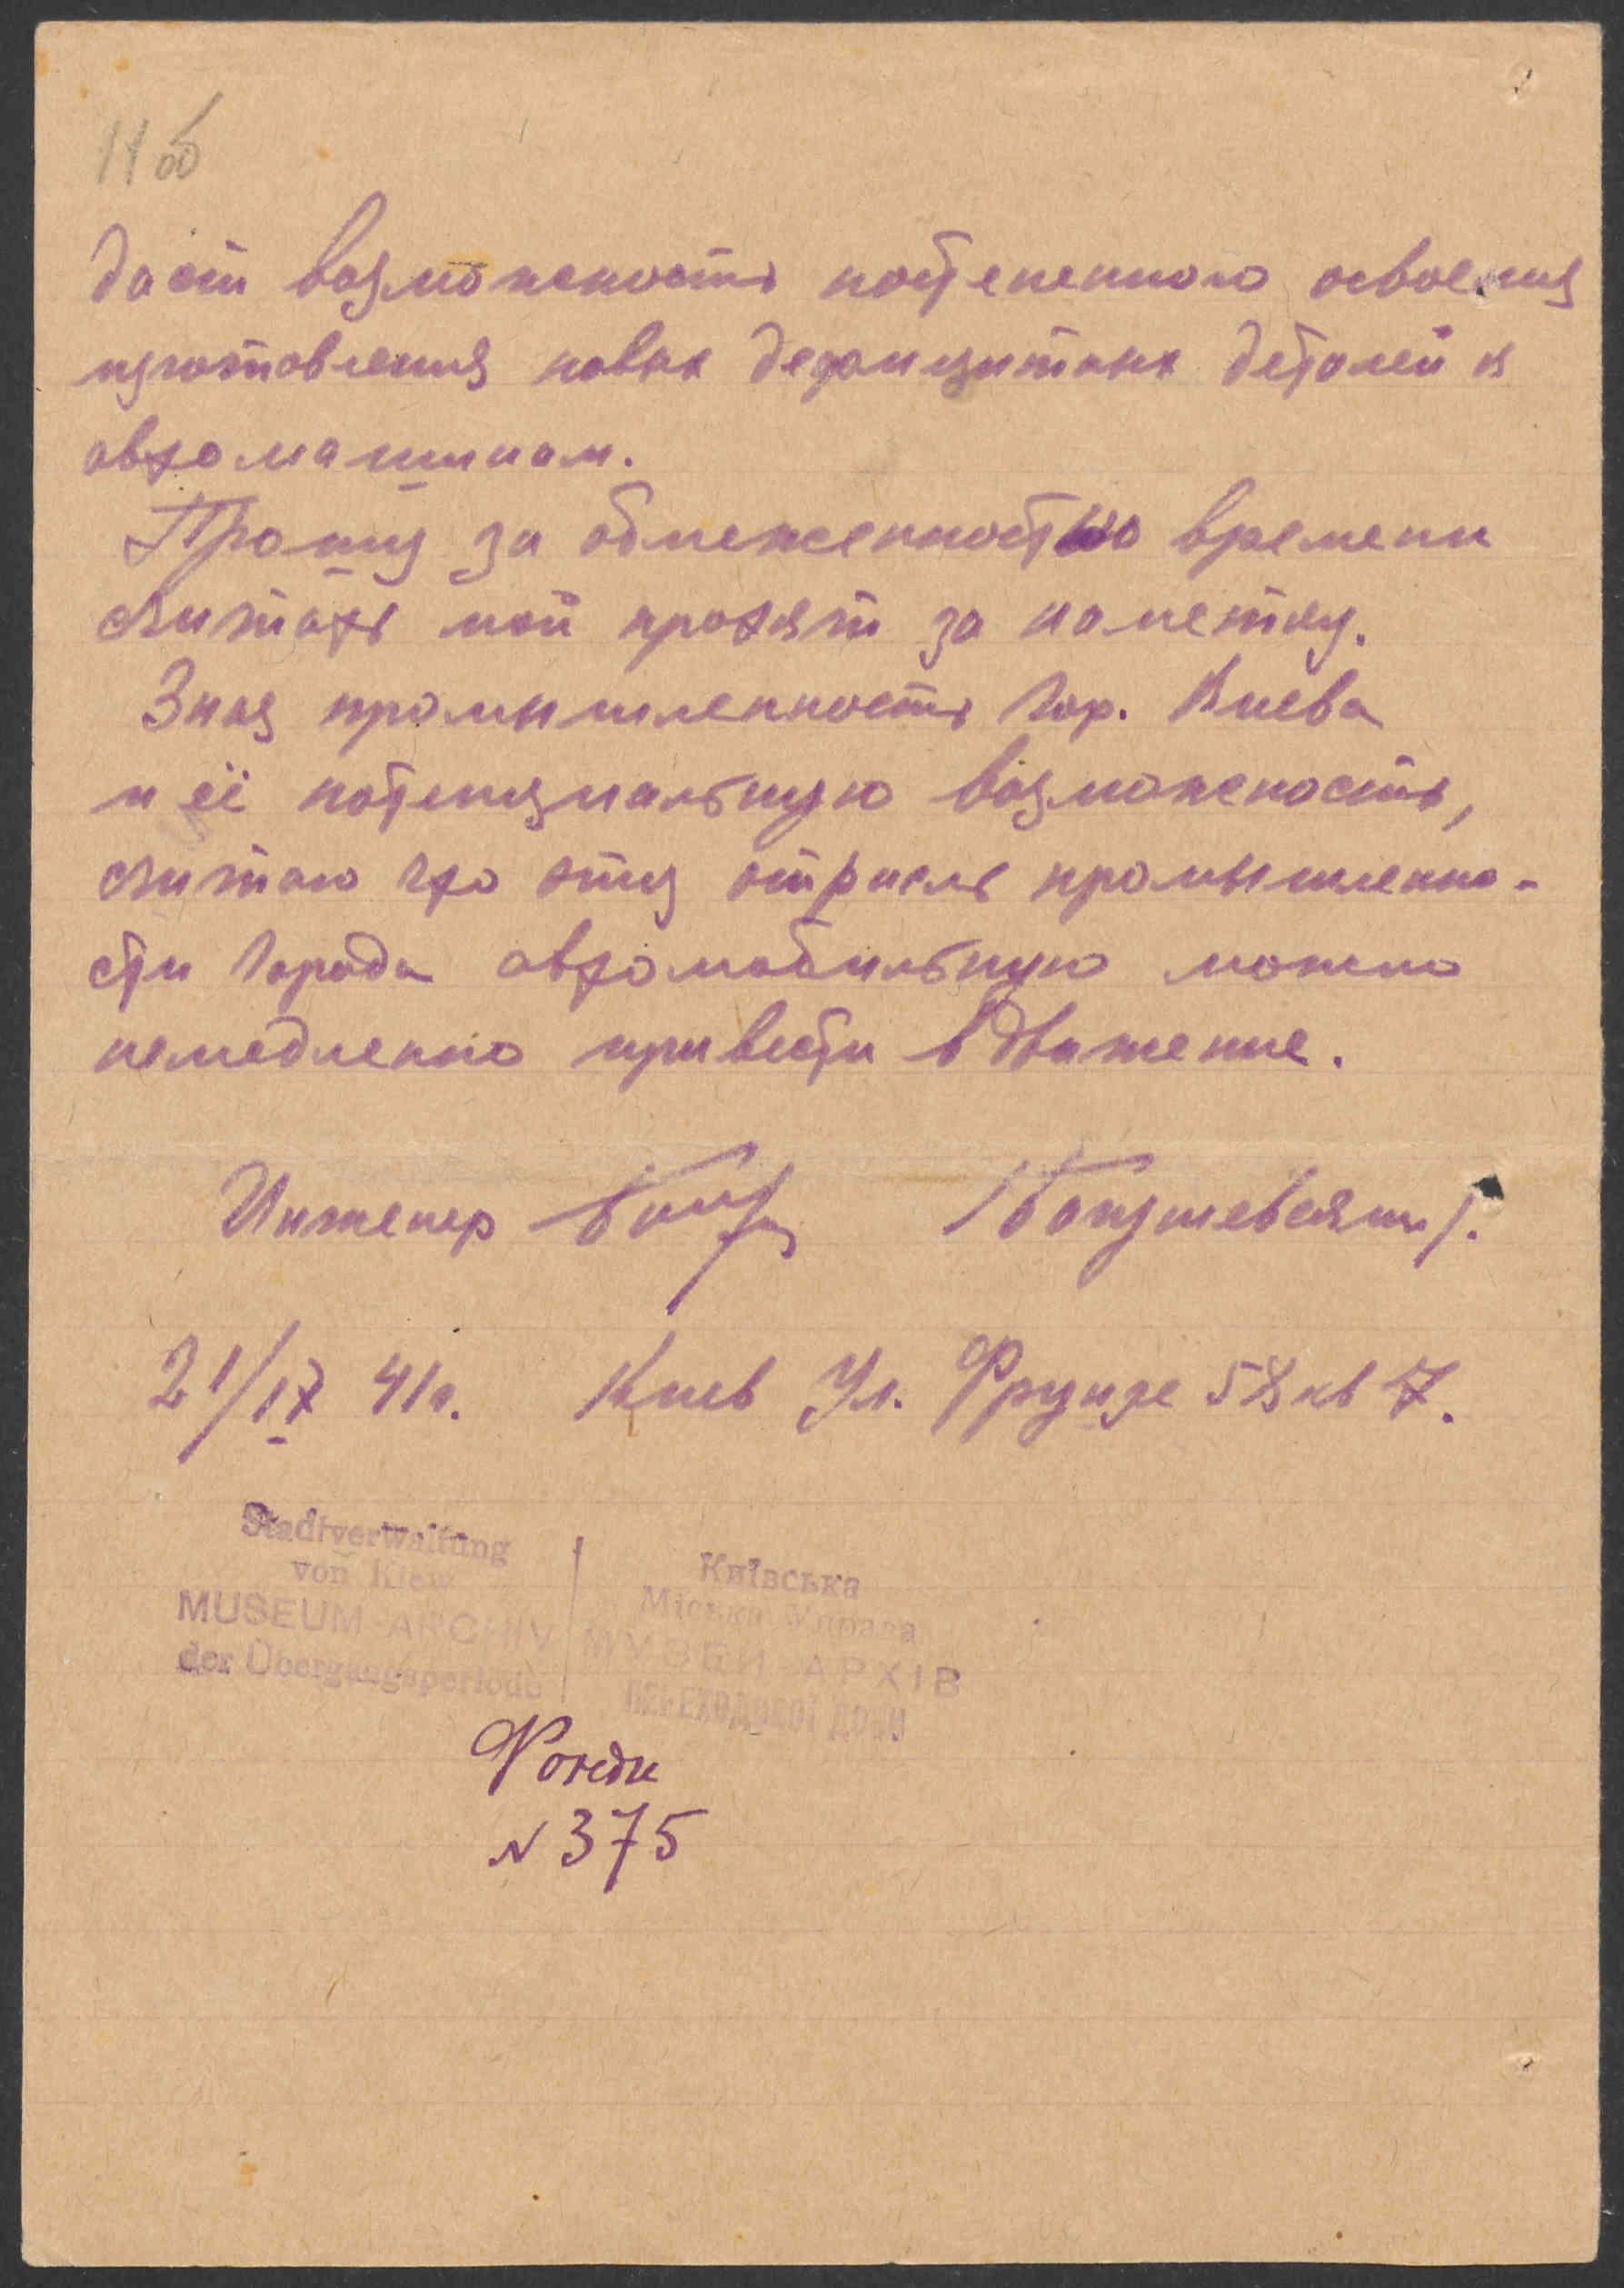 11 об
даст возможность постепенного освоения
изготовления новых дефицитных деталей к
автомашинам.
Прошу за обмеженностью времени
считать мой проэкт за наметку.
Зная промышленность гор. Киева
и её потенциальную возможность,
считаю что эту отрасль промышленно-
сти города автомобильную можно
немедленно привести в движение.
Инженер /Богушевский/.
21/IX 41г. Киев Ул. Фрунзе 58 кв 7.
Stadtverwaltung
von Kiew
MUSEUM-ARCHIV
der Übergangsperiode
Київська
Міська Управа
МУЗЕЙ-АРХІВ
ПЕРЕХОДОВОЇ ДОБИ
№ 375